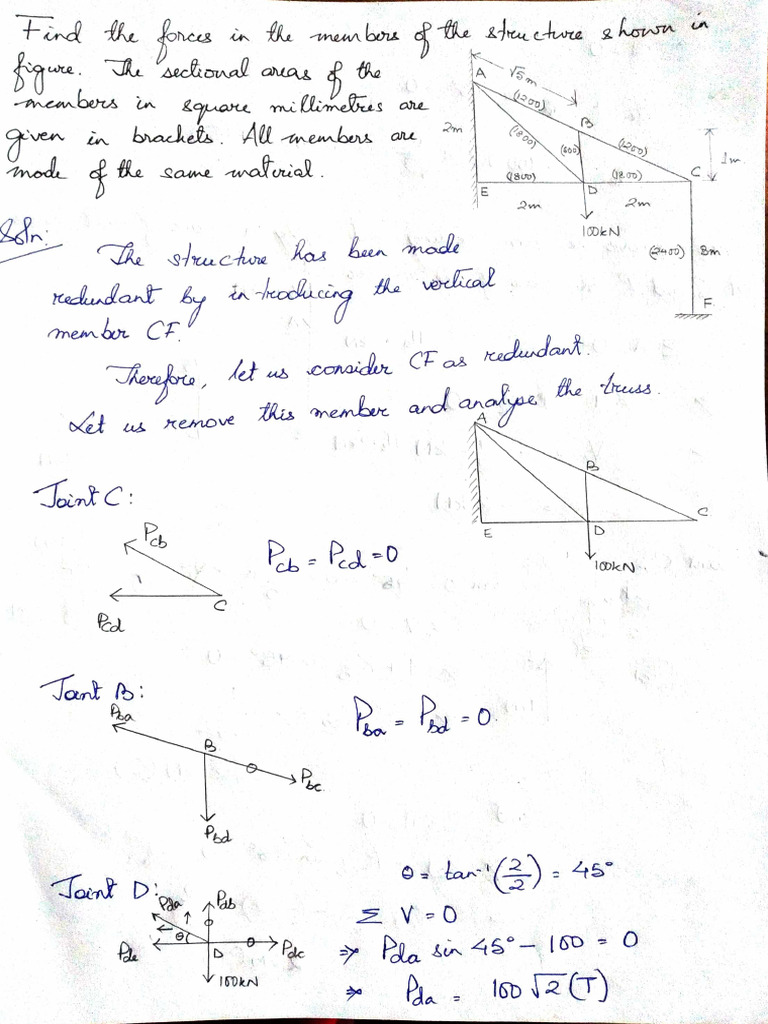 Find the forces in the members of the structure shown in
figure. The sectional areas of the
members in square millimetres are
given in brackets. All members are
mode of the same material.
√5m
A
(1200)
B
2m
(1800)
(600)
(1200)
1m
C
E
(1800)
D
(1800)
2m
2m
100kN
(2400)
3m
F
Soln:
The structure has been made
redundant by introducing the vertical
member CF.
Therefore, let us consider CF as redundant.
Let us remove this member and analyse the truss.
A
B
C
E
D
100kN
Joint C:
Pcb
Pcb = Pcd = 0
C
Pcd
Joint B:
Pba
Pba = Pbd = 0.
B
Pbc
Pbd
Joint D:
θ = tan⁻¹(2/2) = 45°
Pda
Pdb
Σ V = 0
θ
Pde
D
Pdc
⇒ Pda sin 45° - 100 = 0
100kN
⇒ Pda = 100√2 (T)